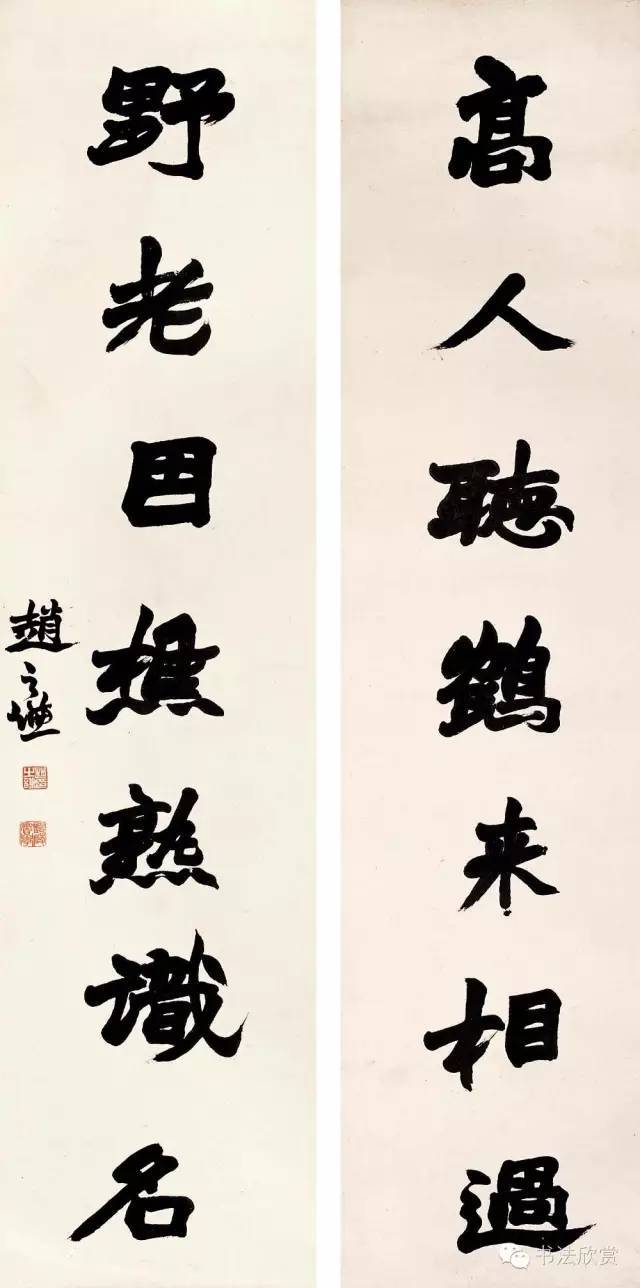 高人聽鶴来相過
野老因樵熟識名
趙之謙
书法欣赏